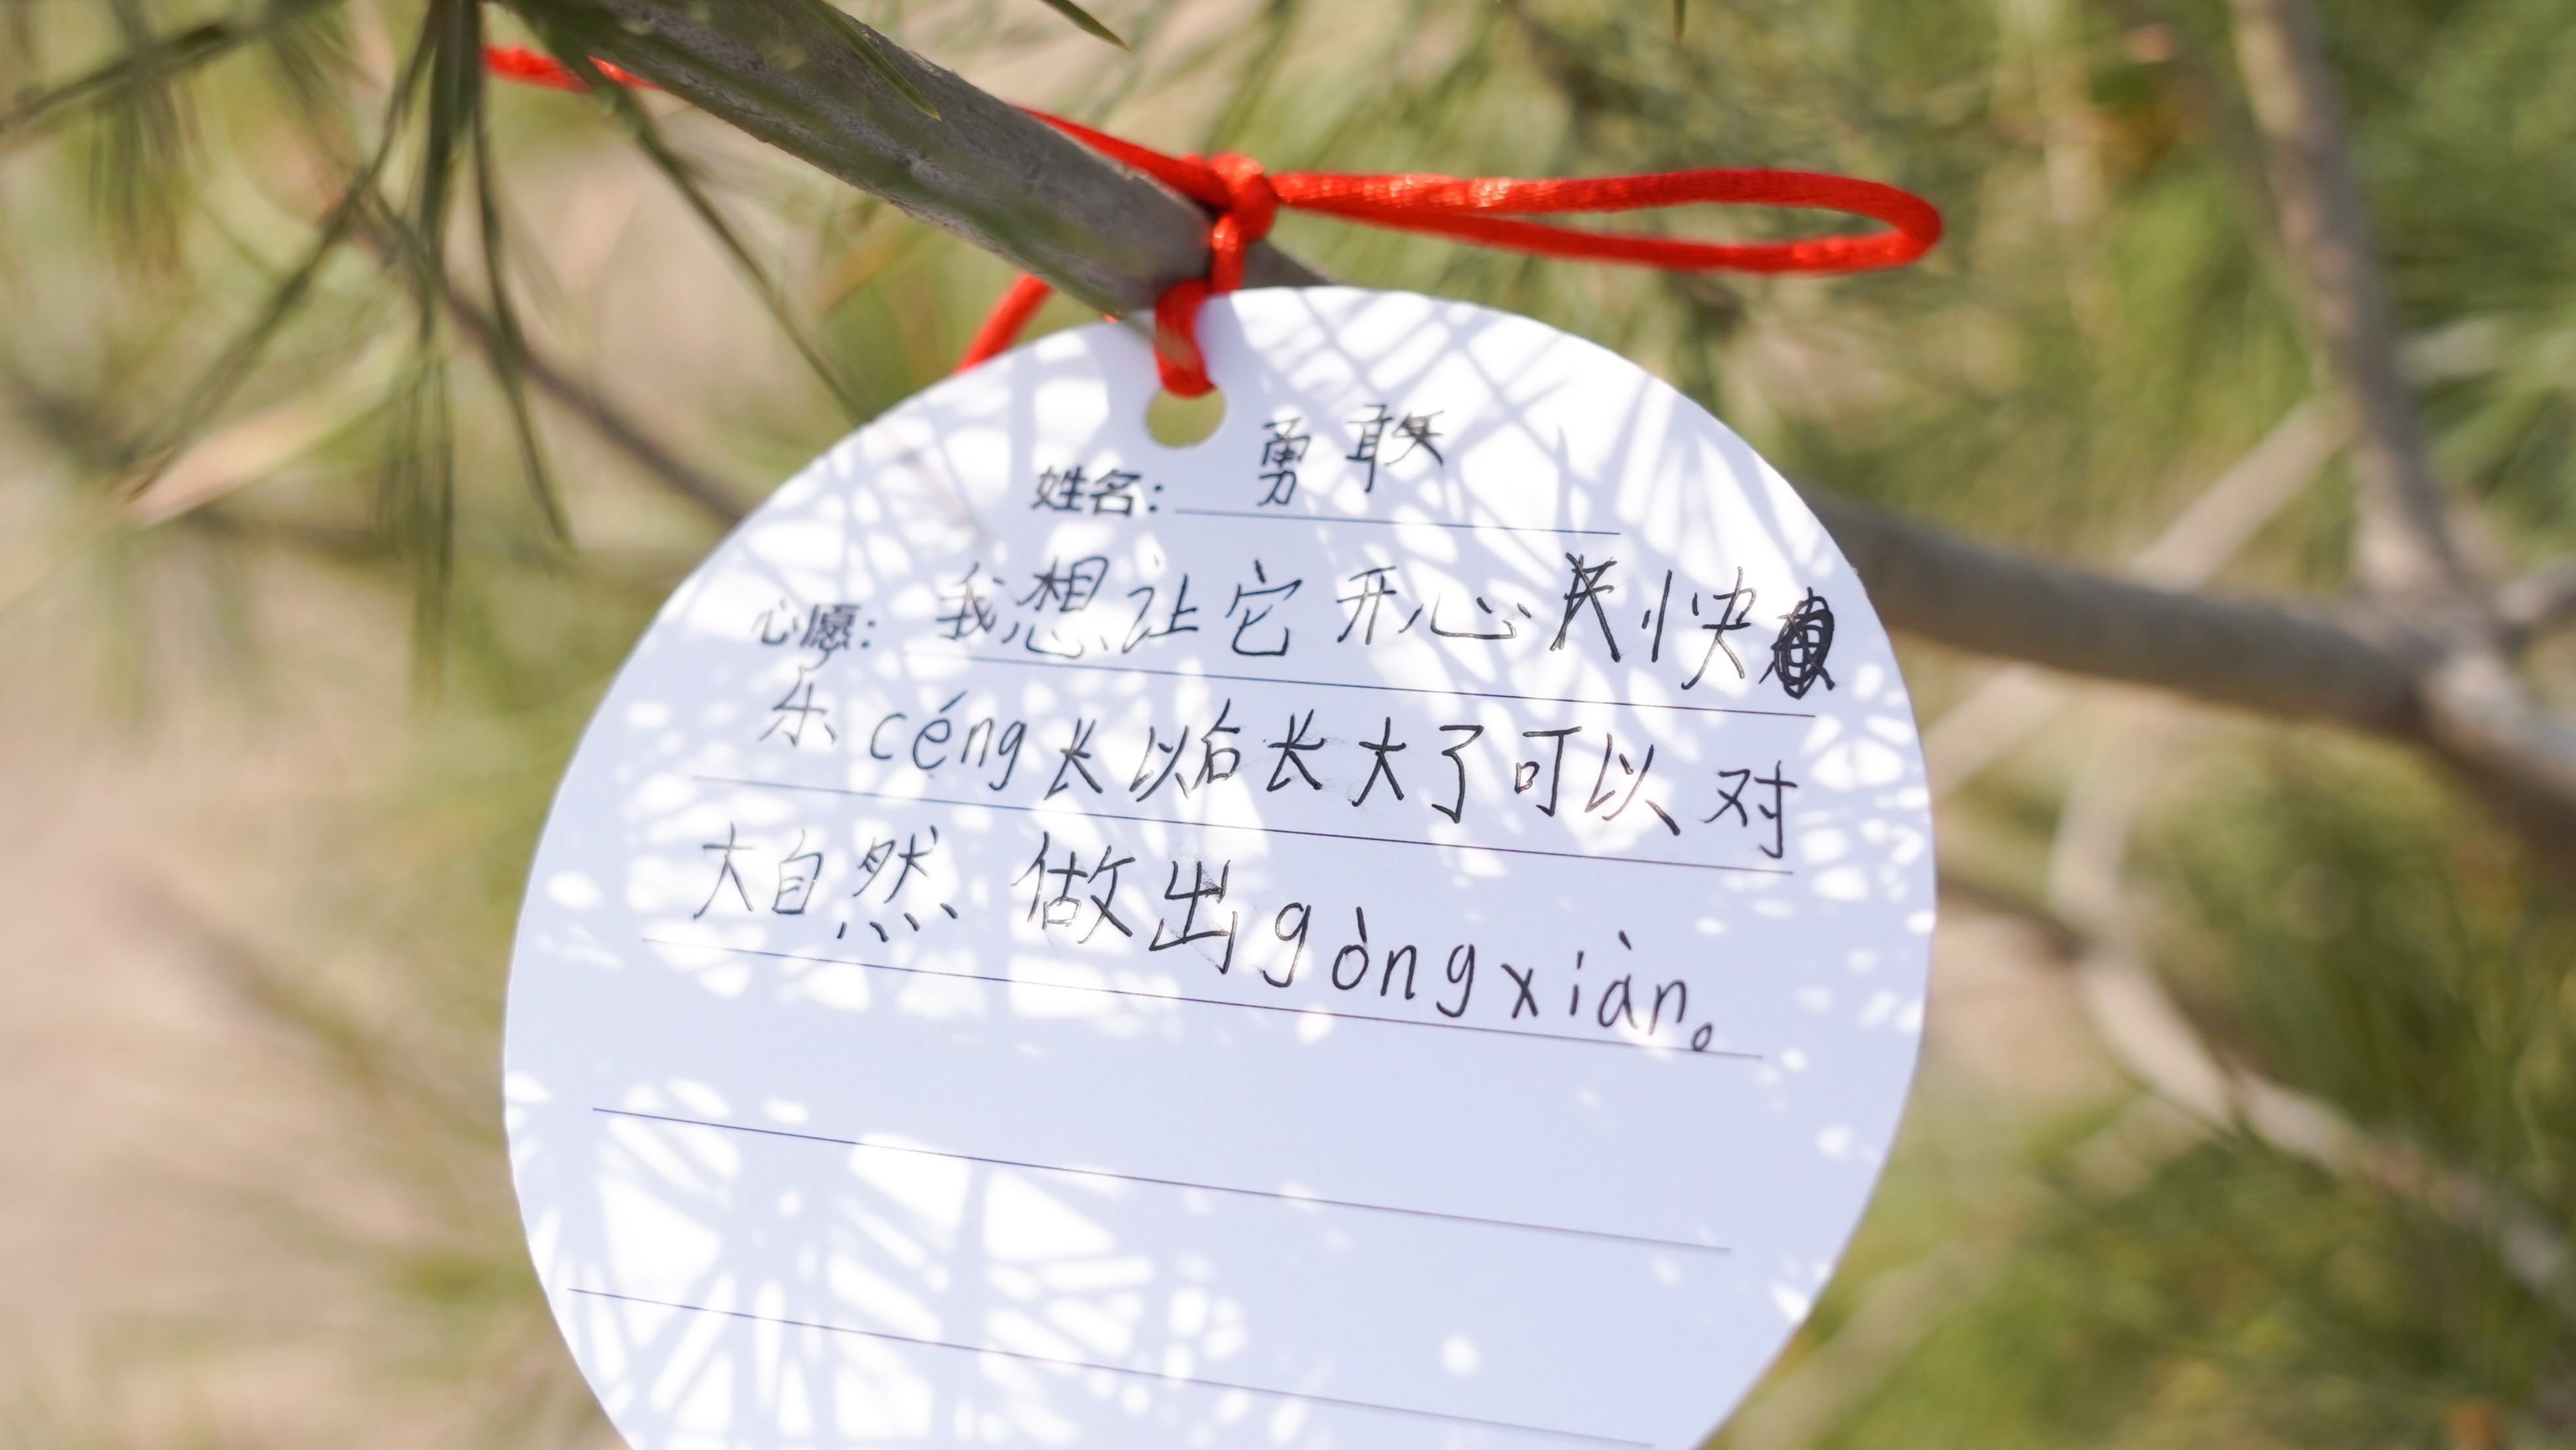 姓名：勇敢
心愿：我想让它开心快
乐céng长以后长大了可以对
大自然、做出gòngxiàn。